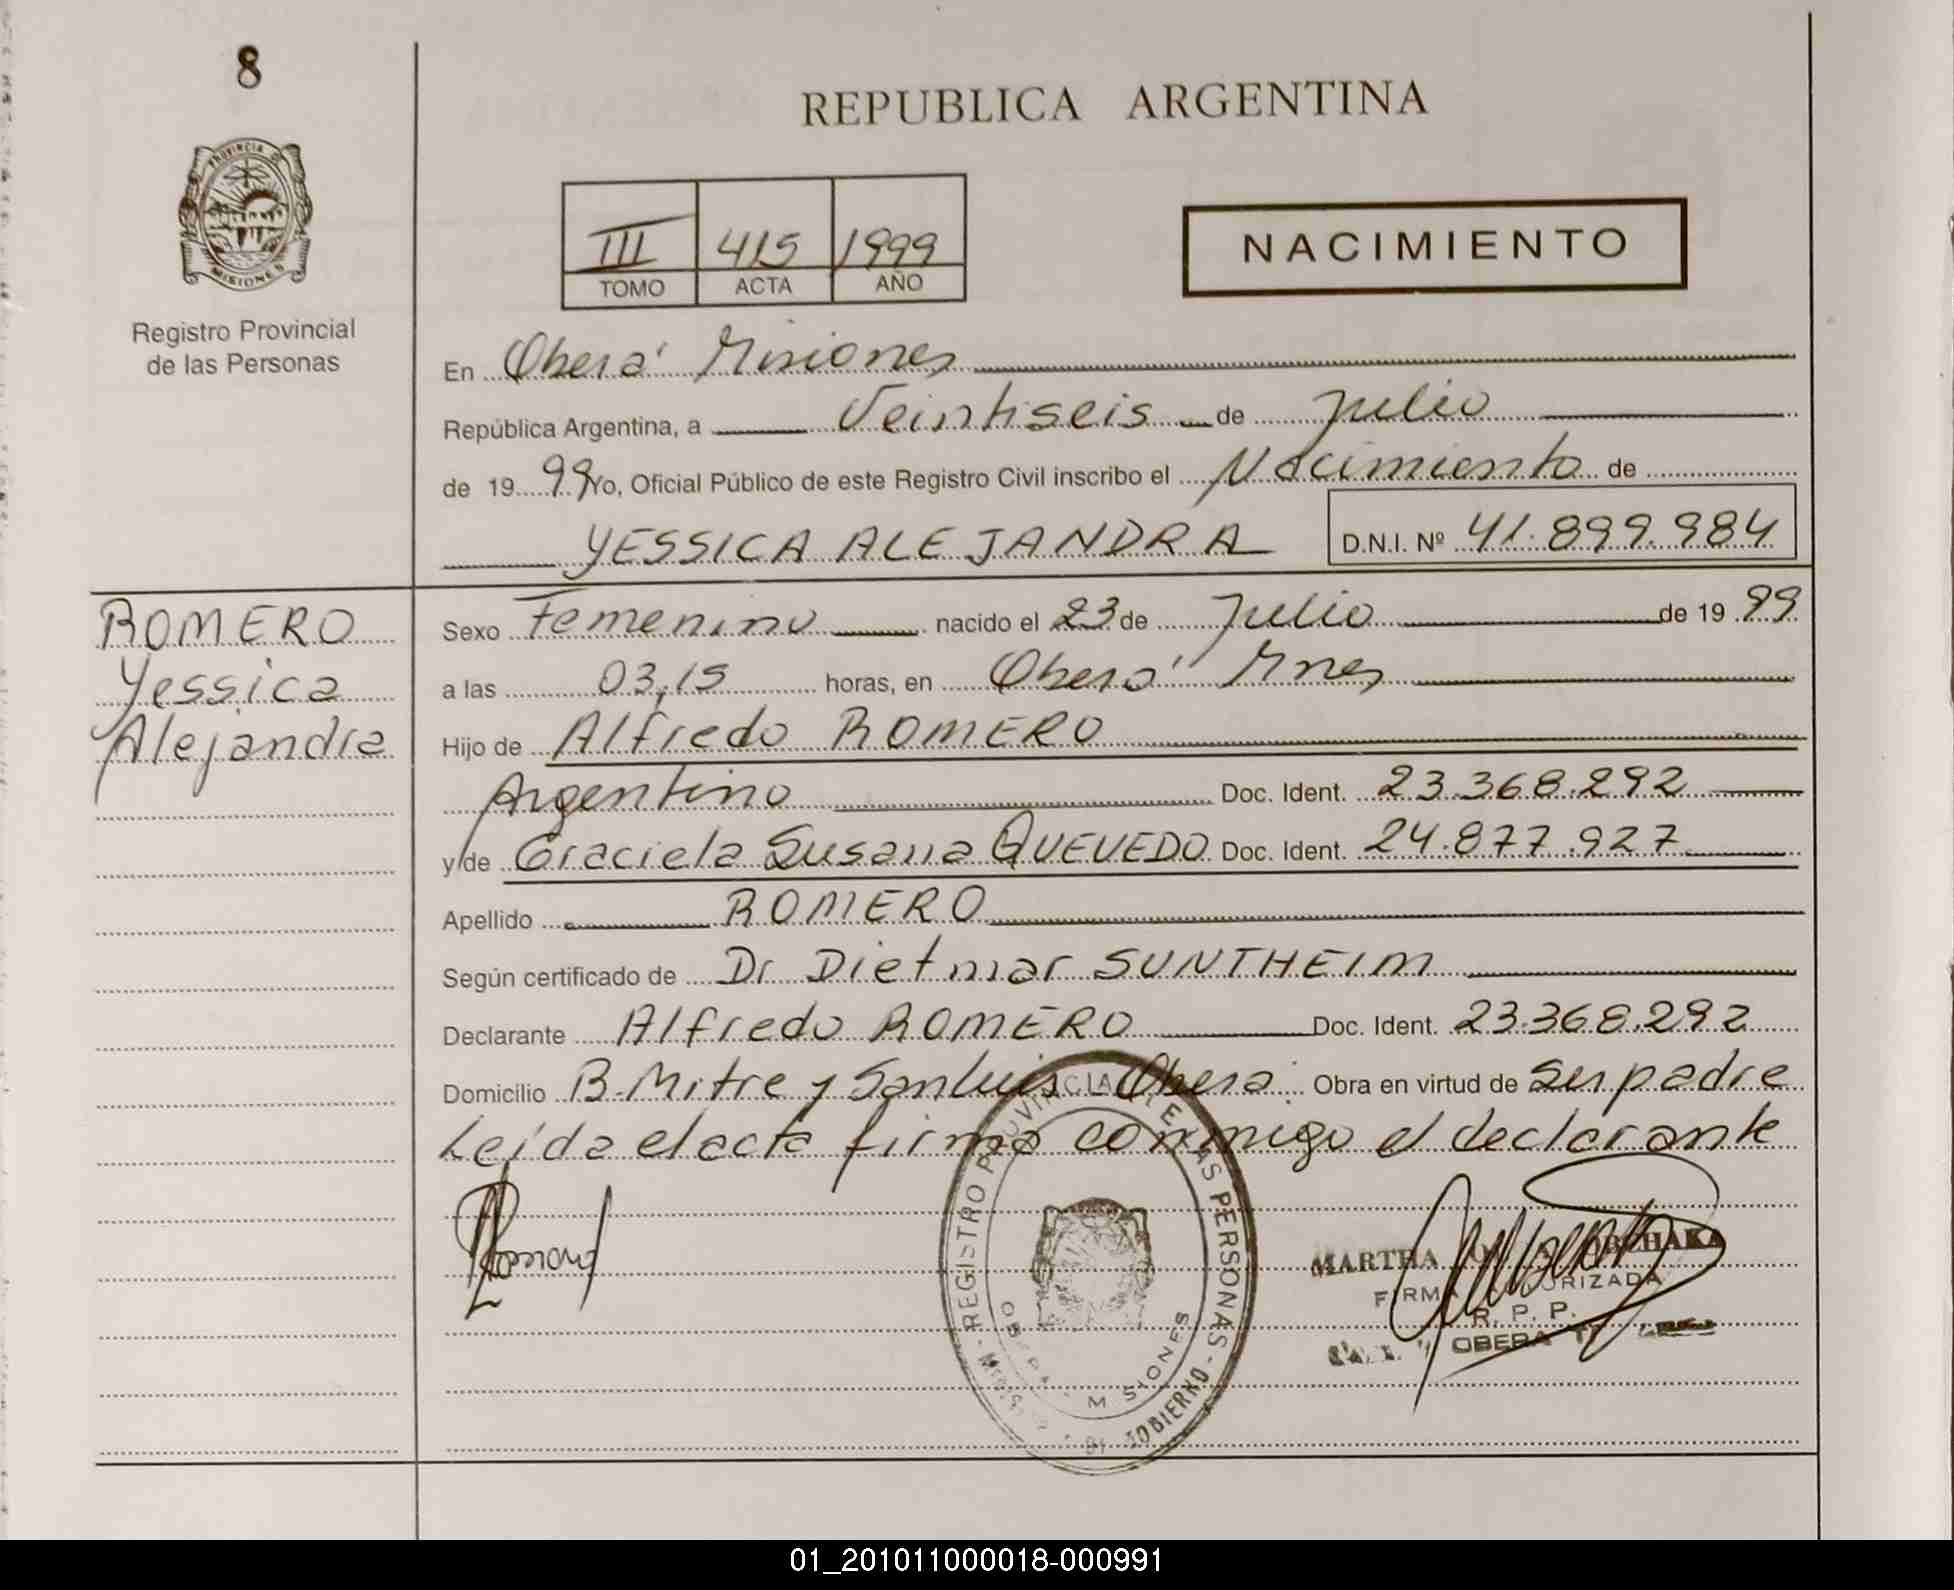 8
PROVINCIA DE
MISIONES
Registro Provincial
de las Personas
REPUBLICA ARGENTINA
III 415 1999
TOMO ACTA AÑO
NACIMIENTO
En Oberá Misiones
República Argentina, a Veintiseis de Julio
de 19 99 Yo, Oficial Público de este Registro Civil inscribo el Nacimiento de
YESSICA ALEJANDRA D.N.I. Nº 41.899.984
ROMERO
Yessica
Alejandra
Sexo Femenino nacido el 23 de Julio de 19 99
a las 03,15 horas, en Oberá Mnes
Hijo de Alfredo ROMERO
Argentino Doc. Ident. 23.368.292
y de Graciela Susana QUEVEDO Doc. Ident. 24.877.927
Apellido ROMERO
Según certificado de Dr Dietmar SUNTHEIM
Declarante Alfredo ROMERO Doc. Ident. 23.368.292
Domicilio B. Mitre y San Luis Oberá Obra en virtud de Ser padre
Leída el acta firma conmigo el declarante
REGISTRO PROVINCIAL DE LAS PERSONAS
OBERA MISIONES
GOBIERNO
MARTHA
FIRMA AUTORIZADA
R. P. P.
OBERA
01_201011000018-000991